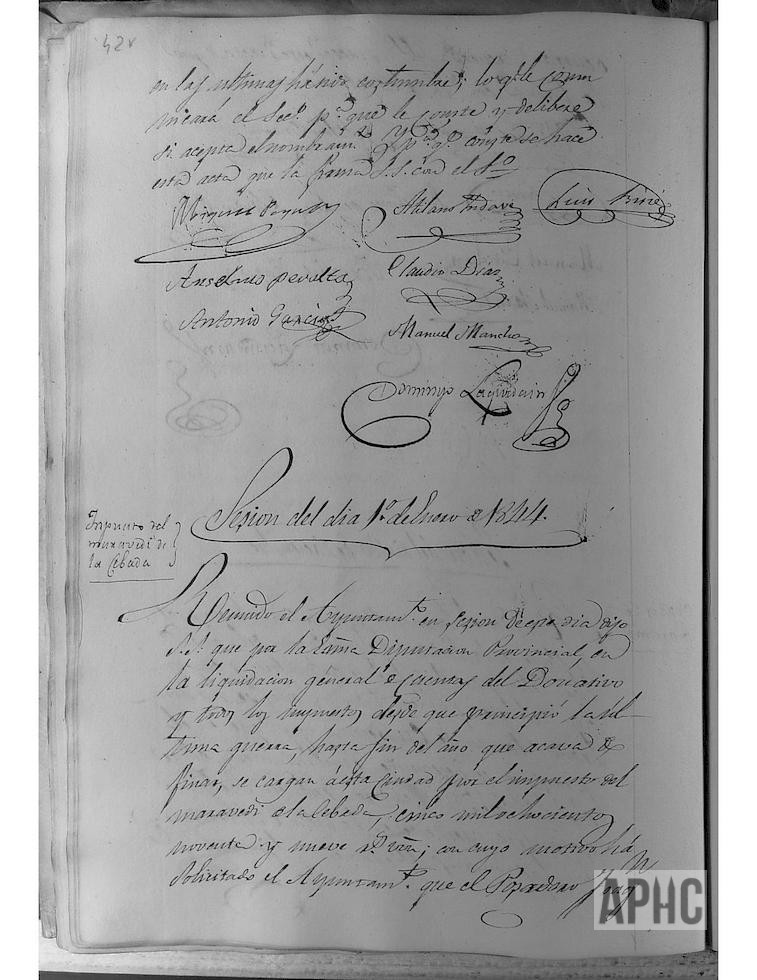 42v
en las ultimas há sido costumbre; lo q.e le comu
nicará el Sec.o p.a que le conste y delibere
si acepta el nombram.to Y p.a q.e conste se hace
esta acta que la firma S.S. con el S.o
Miguel
Atilano Yndave
Luis
Anselmo Peralta
Claudio Diaz
Antonio Garcia
Manuel Mancho
Domingo
Sesion del dia 1.o de Enero de 1844.
Impuesto del
maravedi de
la Cebada
Reunido el Ayuntam.to en sesion de este dia dijo
S.S. que por la Exma Diputacion Provincial, en
la liquidacion general de cuentas del Donativo
y todos los impuestos desde que principió la ul-
tima guerra, hasta fin del año que acava de
finar, se cargan á esta Ciudad por el impuesto del
maravedi de la Cebada, cinco mil ochocientos
noventa y nueve r.s von; con cuyo motivo há
solicitado el Ayuntam.to que el Joaq.n
APHC